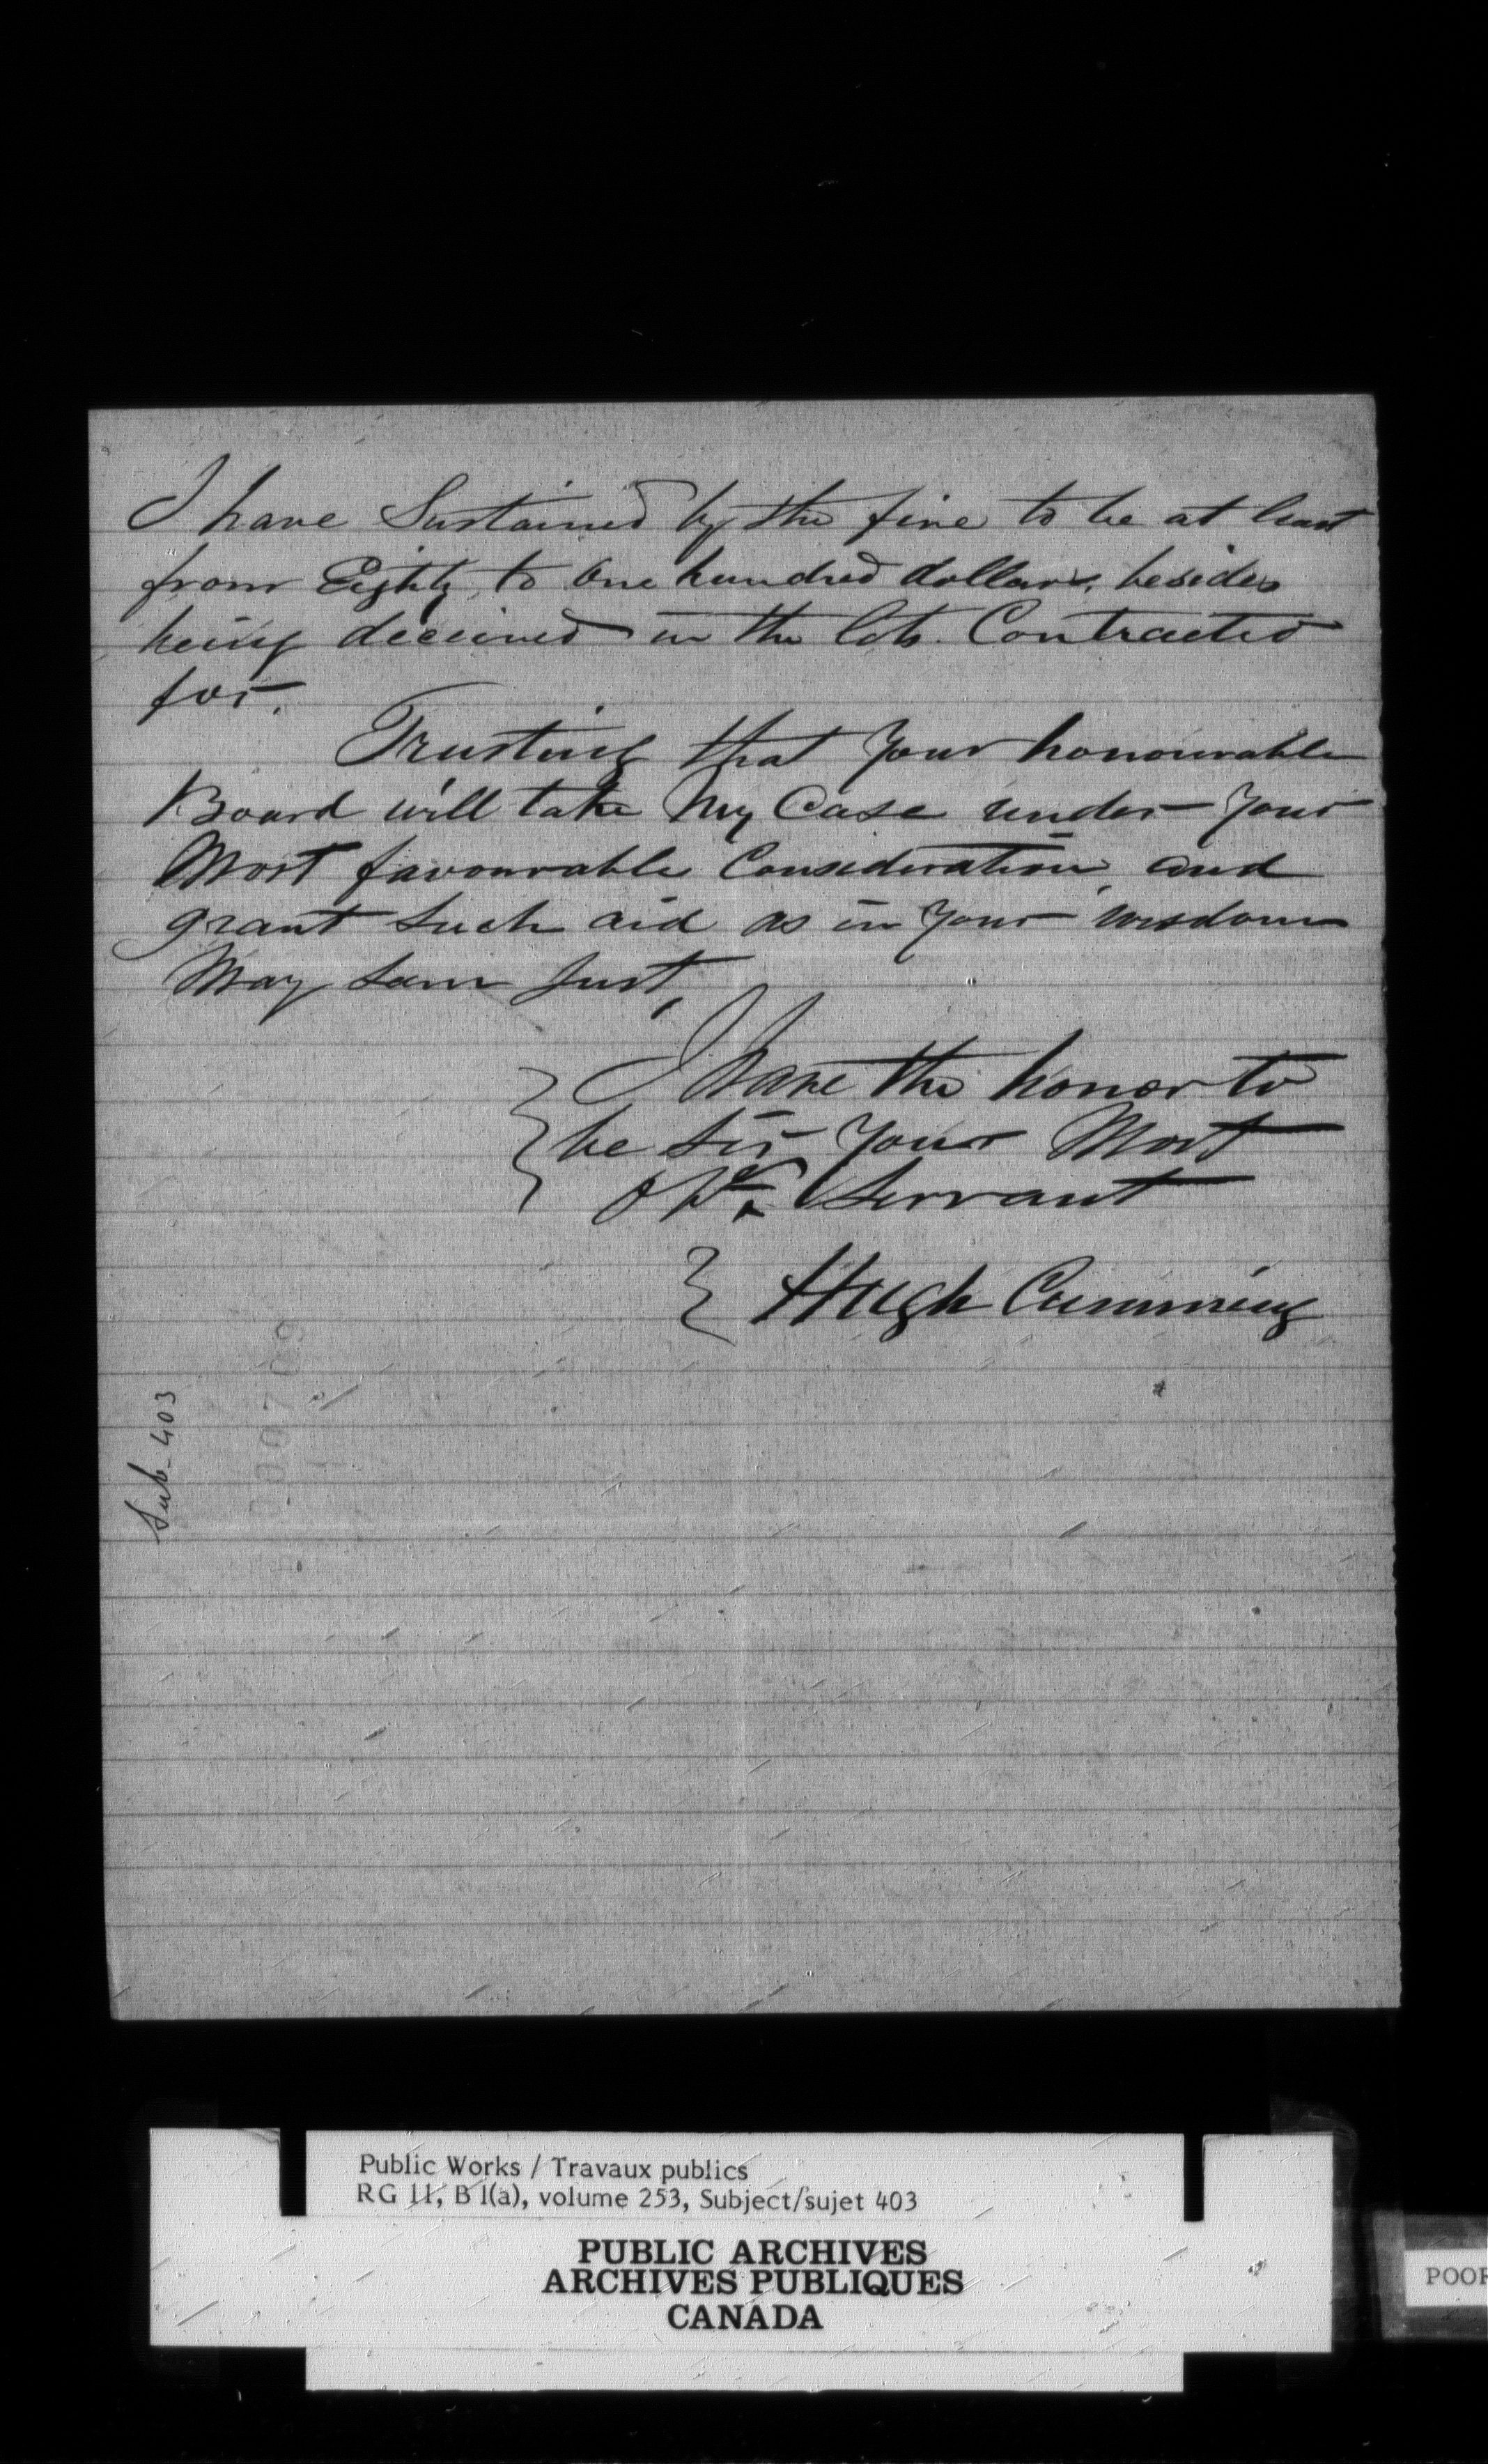 I have Sustained by the fire to be at least
from Eighty to One hundred dollars, besides
being deceived in the lots Contracted
for.
Trusting that Your honourable
Board will take My Case under Your
Most favourable Consideration, and
grant such aid as in Your wisdom
May seem Just,
I have the honor to
be Sir Your Most
Obt. Servant
Hugh Cumming
Sub. 403
Public Works / Travaux publics
RG 11, B 1(a), volume 253, Subject/sujet 403
PUBLIC ARCHIVES
ARCHIVES PUBLIQUES
CANADA
POOR